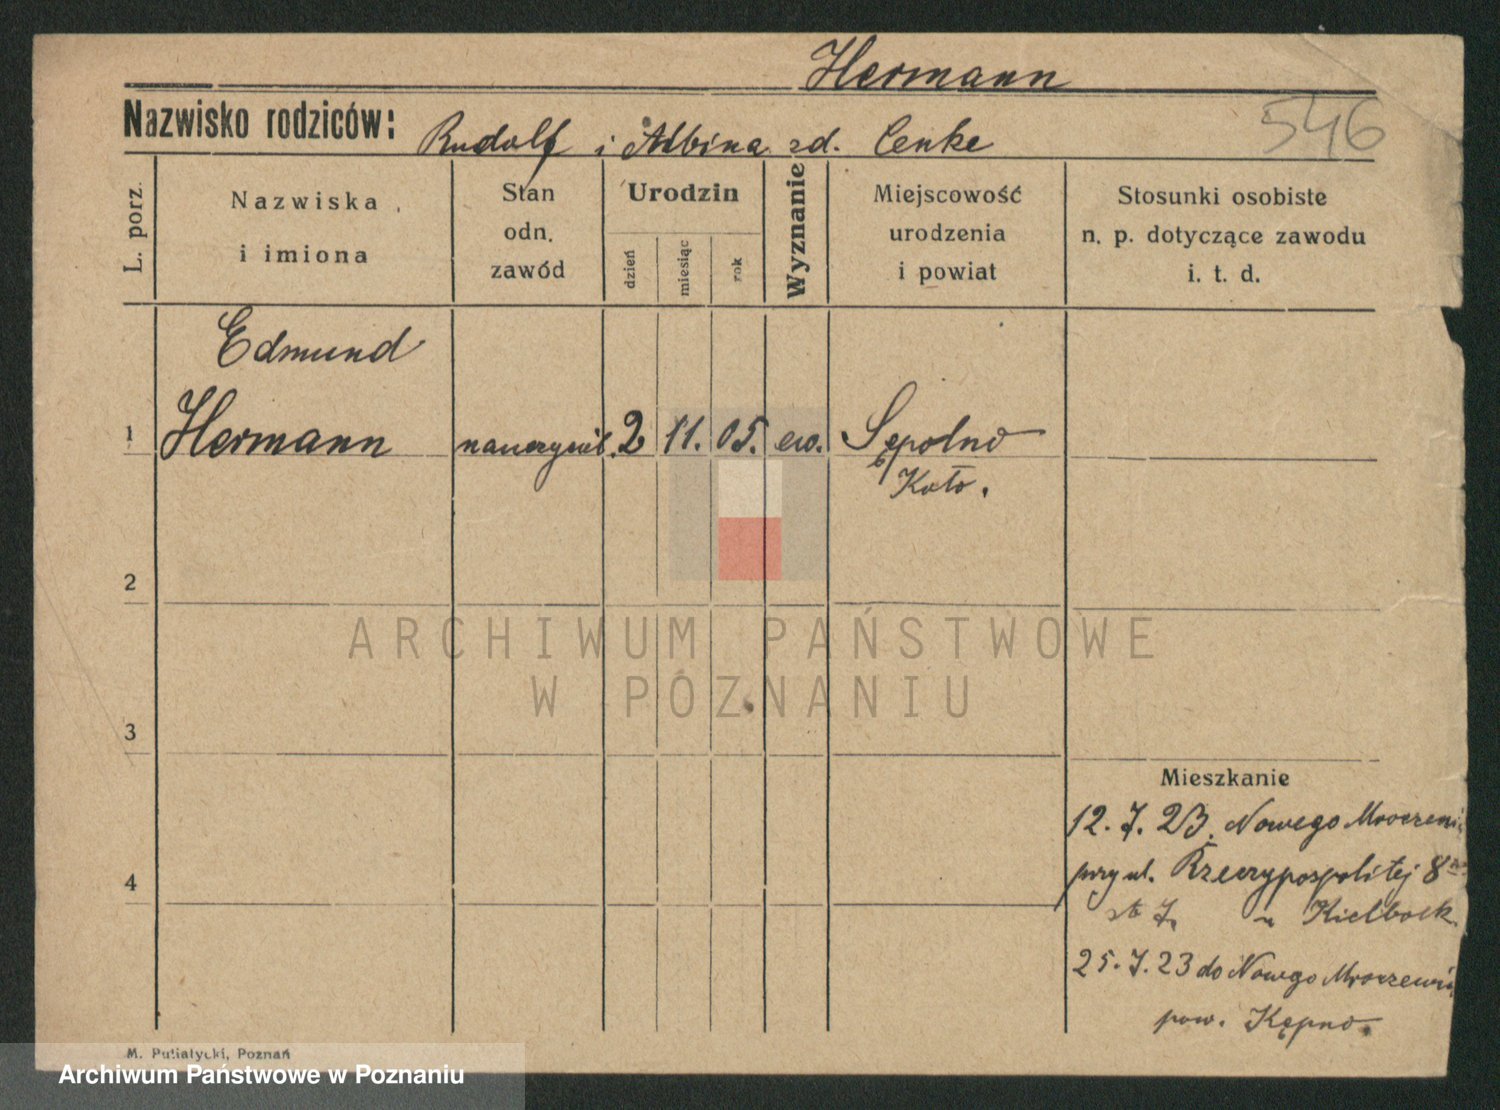 Hermann
Nazwisko rodziców:
Rudolf i Albina zd. Cenke
546
L. porz.
Nazwiska
i imiona
Stan
odn.
zawód
Urodzin
dzień
miesiąc
rok
Wyznanie
Miejscowość
urodzenia
i powiat
Stosunki osobiste
n. p. dotyczące zawodu
i. t. d.
Edmund
1 Hermann nauczyciel. 2 11. 05. ew. Sępolno
Koło.
2
3
4
ARCHIWUM PAŃSTWOWE
W POZNANIU
Mieszkanie
12. 7. 23. Nowego
przy ul. Rzeczypospolitej 8
7. u
25. 7. 23 do Nowego
pow. Kępno.
M. Putiatycki, Poznań
Archiwum Państwowe w Poznaniu